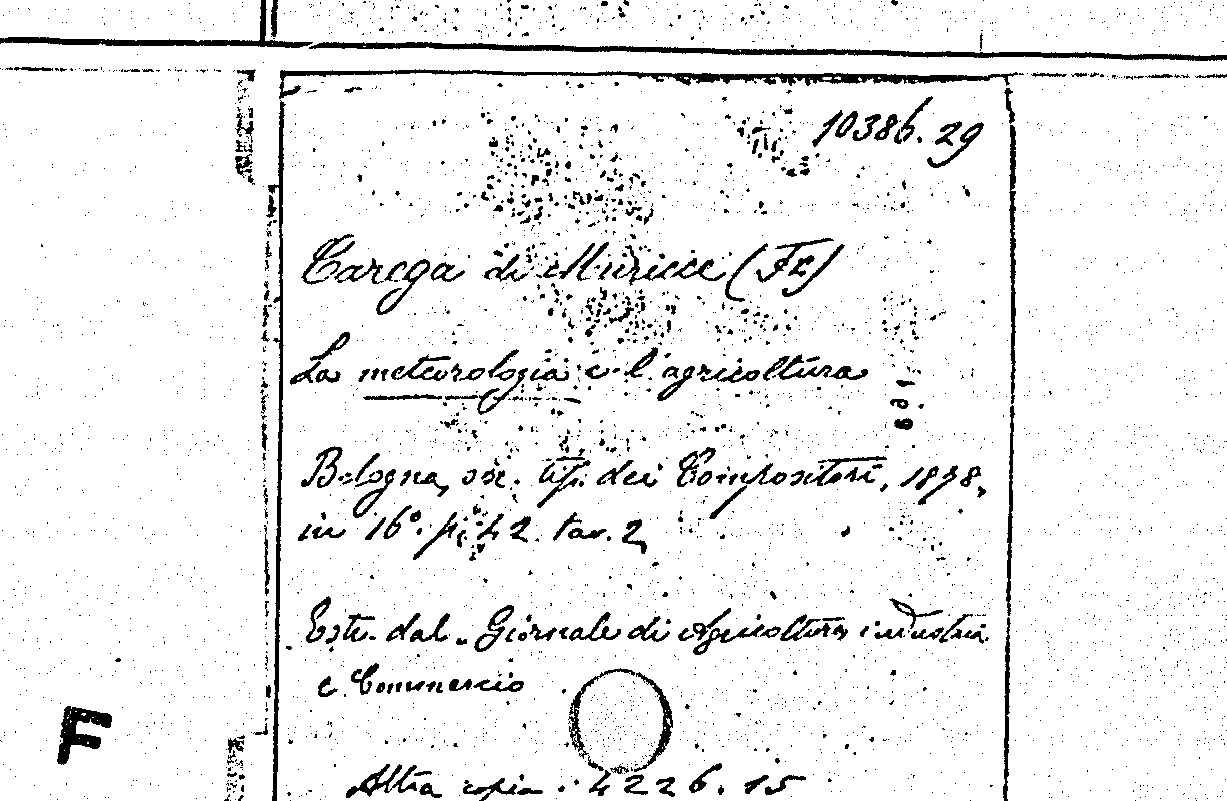 10386. 29
Carega di Muricce (Fr)
La meteorologia e l'agricoltura
Bologna, soc. tip. dei Compositori, 1878,
in 16º. p. 42. tav. 2,
Estr. dal. Giornale di Agricoltura, industria
e Commercio
F
Altra copia. 4226. 15